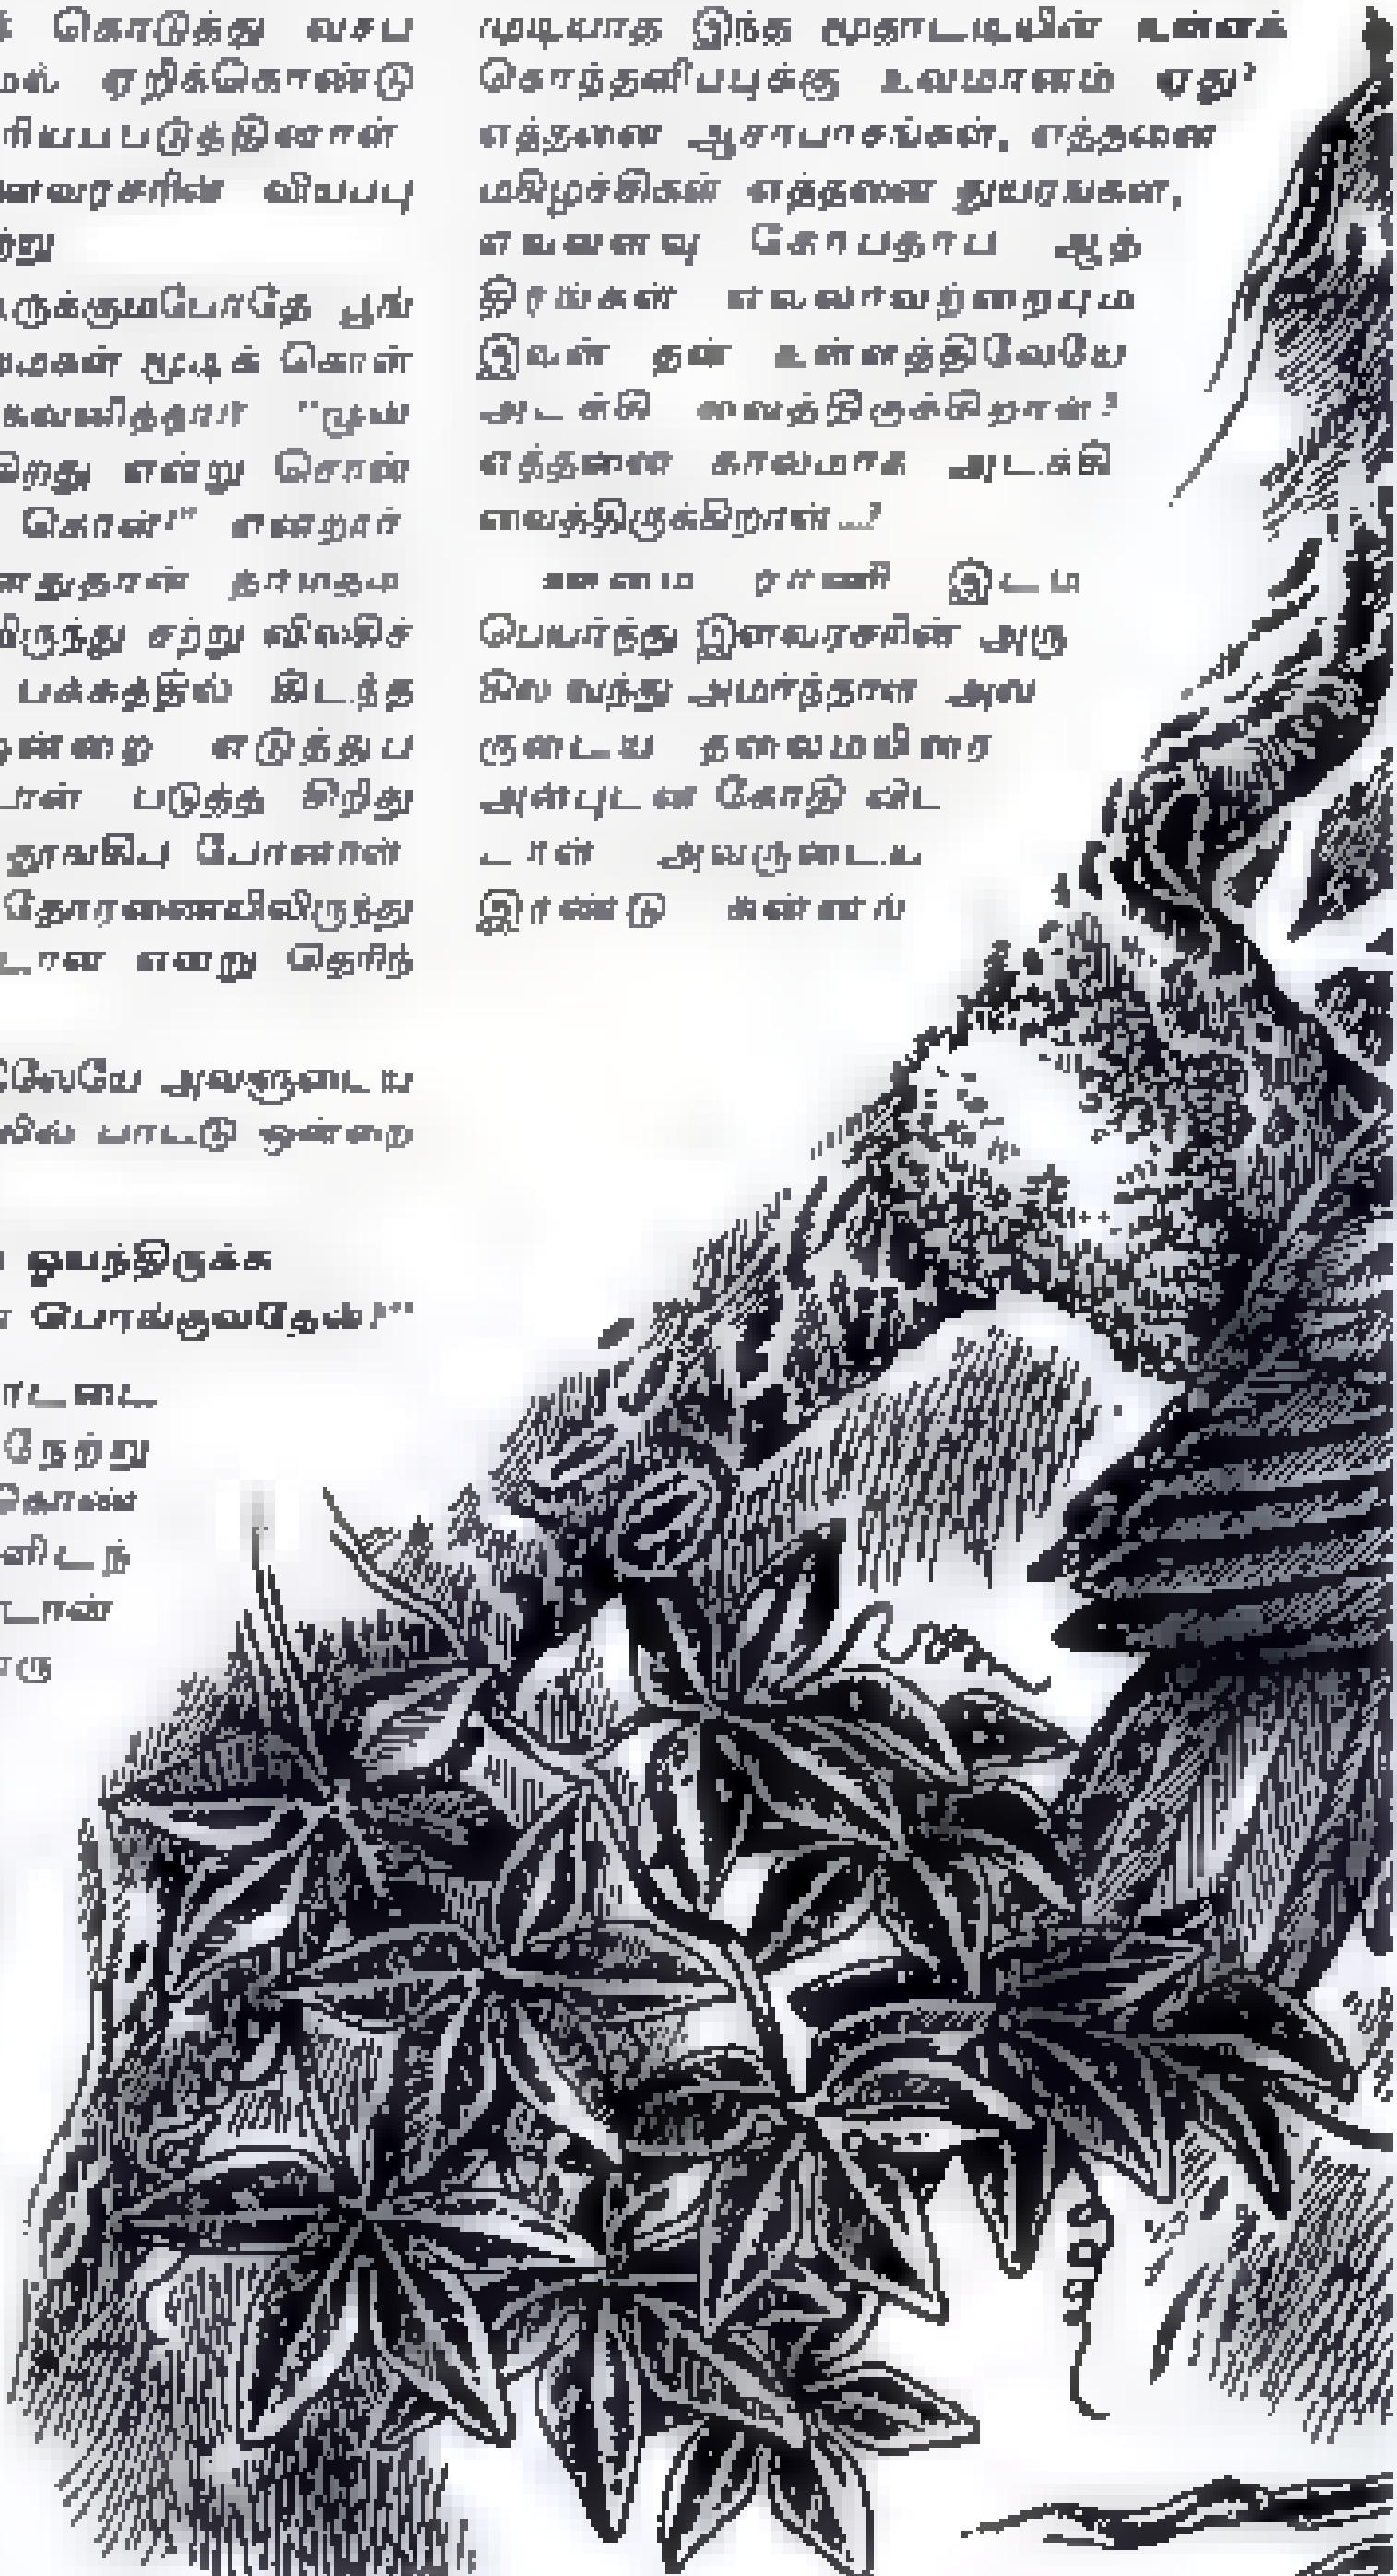 கொடுத்து வசப
மல் ஏறிக்கொண்டு
ரியபபடுத்தினாள்
ளவரசரின் வியபபு
ற்று
ருக்குமபோதே பூங்
மகள் மூடிக் கொள்
கவனித்தார் "மூய
றது என்று சொன்
கொள்" என்றார்
னதுதான் தாமதம
ிருந்து சற்று விலகிச்
பக்கத்தில் கிடந்த
ஒன்றை எடுத்துப
படுத்த சிறிது
தூங்கிப போனாள்
தோரணையிலிருந்து
டாள் என்று தெரிந்
லேயே அவளுடைய
லில் பாட்டு ஒன்றை
ஓயந்திருக்க
பொங்குவதேன்?"
நேற்று
முடியாத இந்த மூதாட்டியின் உள்ளக்
கொந்தளிபபுக்கு உவமானம் ஏது?
எத்தனை ஆசாபாசங்கள், எத்தனை
மகிழ்ச்சிகள் எத்தனை துயரங்கள்,
எவவளவு கோபதாப ஆத்
திரங்கள் எலலாவற்றையும
இவள் தன் உள்ளத்திலேயே
அடக்கி வைத்திருக்கிறாள்?
எத்தனை காலமாக அடக்கி
வைத்திருக்கிறாள்...?
ஊமை ராணி இடம
பெயர்ந்து இளவரசரின் அரு
கில வந்து அமர்ந்தாள் அவ
ருடைய தலைமயிரை
அன்புடன கோதி விட
டாள் அவருடைய
இரண்டு கன்னங்